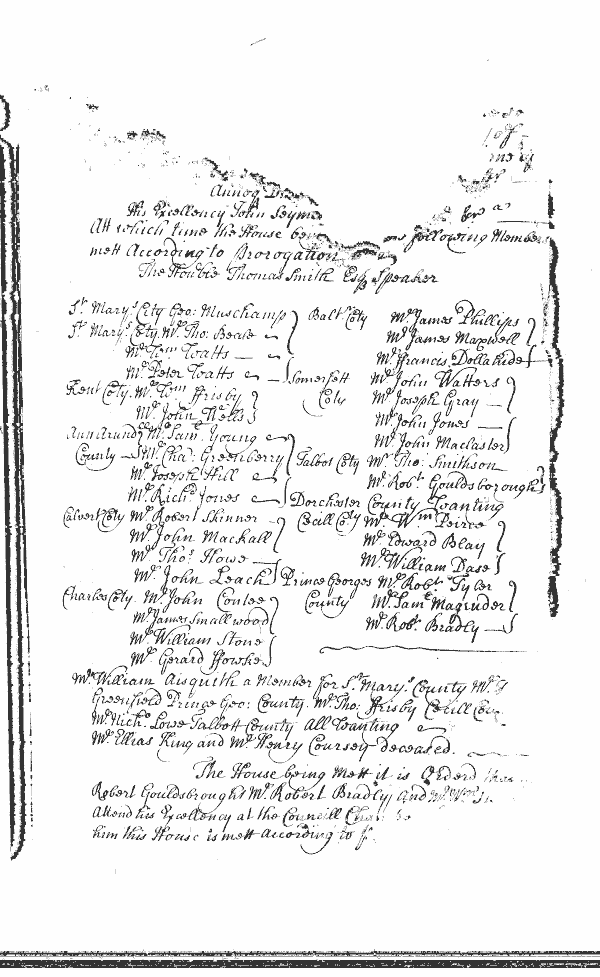 Annoq Do
His Excellency John Seym for a
Att which time the House be following Member
mett According to Prorogation
The Honble Thomas Smith Esq Speaker
St. Marys City Geo: Muschamp
St. Marys Coty. Mr. Tho: Beale
Mr. Wm Watts
Mr. Peter Watts
Kent Coty. Mr. Wm ffrisby
Mr. John Wells
AnnArund Mr. Sam. Young
County Mr. Cha: Greenberry
Mr. Joseph Hill
Mr. Richd Jones
Calvert Coty Mr. Robert Skinner
Mr. John Mackall
Mr. Thos. Howe
Mr. John Leach
Charles Coty. Mr. John Contee
Mr. James Smallwood
Mr. William Stone
Mr. Gerard ffowke
Balt Coty Mr. James Phillips
Mr. James Maxwell
Mr. Francis Dollahide
Somersett Mr. John Watters
Coty Mr. Joseph Gray
Mr. John Jones
Mr. John Maclaster
Talbot Coty Mr. Tho: Smithson
Mr. Robt. Gouldsborough
Dorchester County Wanting
Cecill Coty Mr. Wm Peirce
Mr. Edward Blay
Mr. William Dare
Prince Georges Mr. Robt. Tyler
County Mr. Saml Magruder
Mr. Robt. Bradly
Mr. William Aisquith a Member for St. Marys County Mr. T
Greenfield Prince Geo: County. Mr. Tho: ffrisby Cecill Cou
Mr. Nichs. Lowe Talbott County All Wanting
Mr. Ellias King and Mr. Henry Coursey deceased.
The House being Mett it is Orderd
Robert Gouldsbrought Mr. Robert Bradly and
Attend his Excellency at the Councill Cha
him this House is mett according to